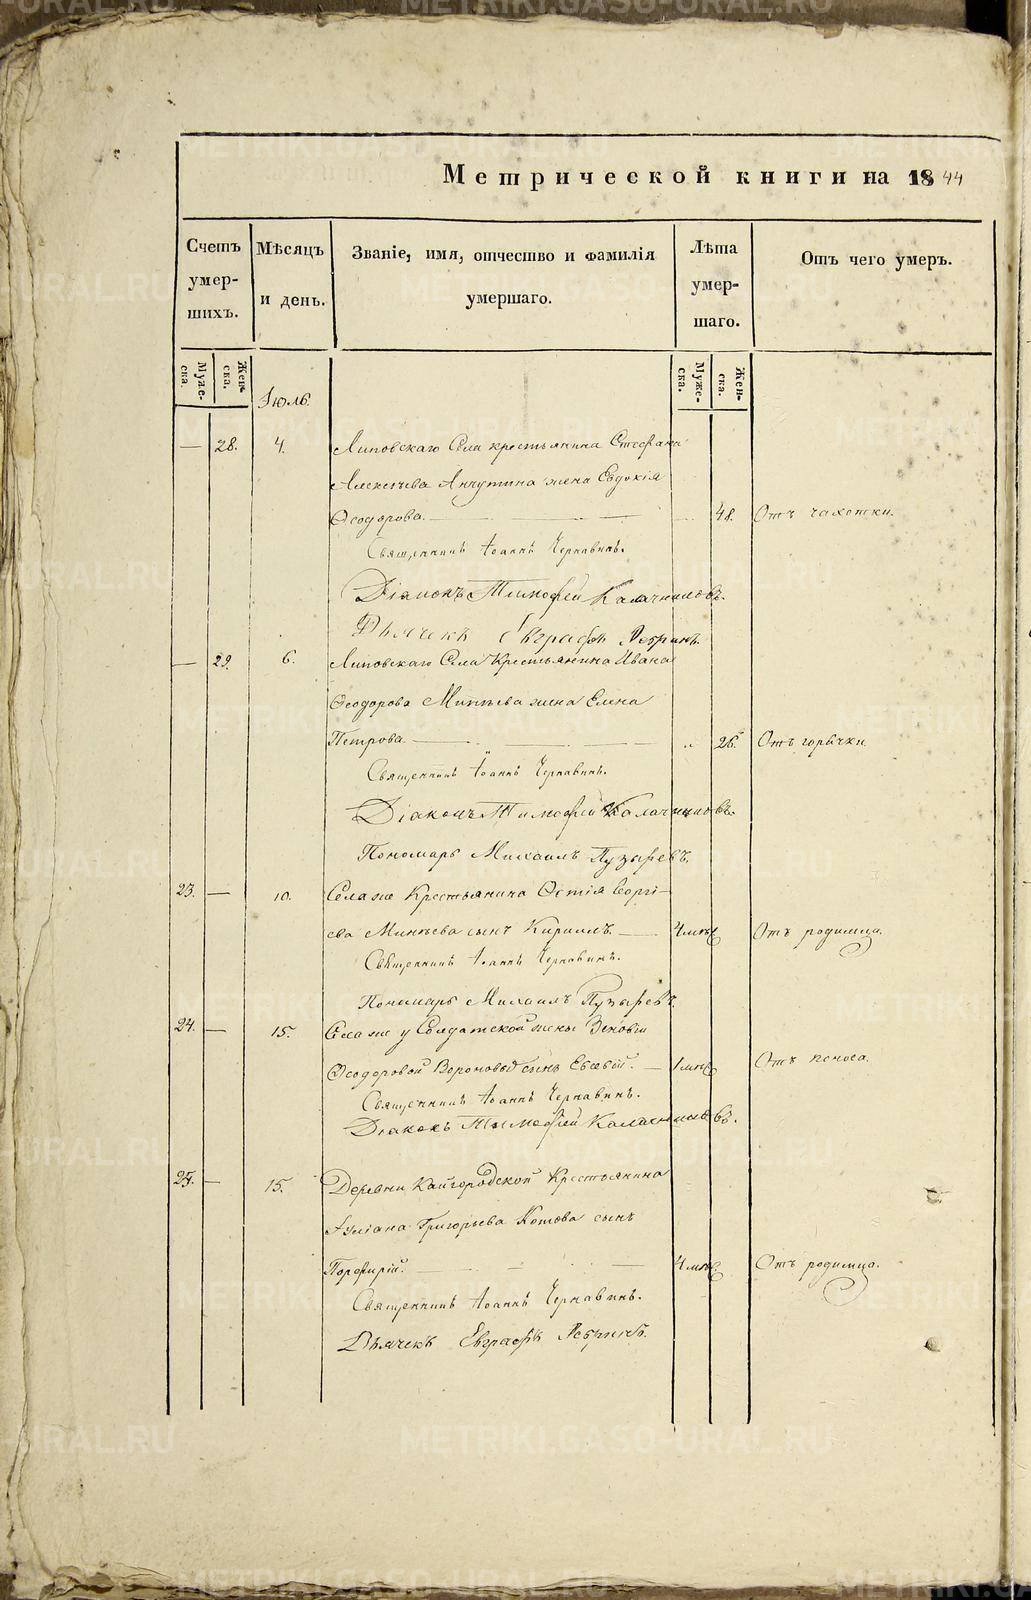 Метрической книги на 1844
Счетъ умершихъ.
Мѣсяцъ и день.
Званіе, имя, отчество и фамилія умершаго.
Лѣта умершаго.
Отъ чего умеръ.
Мужеска.
Женска.
Мужеска.
Женска.
Іюль.
— 28. 4. Липовскаго Села крестьянина Стефана
Алексѣева Анчутина жена Евдокія
Ѳеодорова. — 48. Отъ чахотки.
Священникъ Іоаннъ Чернавинъ.
Діаконъ Тимофей Калачниковъ.
Дьячекъ Евграфъ
— 29. 6. Липовскаго Села Крестьянина Ивана
Ѳеодорова Минѣева жена Елена
Петрова — 26. Отъ горячки
Священникъ Іоаннъ Чернавинъ.
Діаконъ Тимофей Калачниковъ.
Пономарь Михаилъ Пузыревъ.
23. — 10. Села же Крестьянина
ева Минѣева сынъ Кириллъ. — 4 мѣс Отъ родимца.
Священникъ Іоаннъ Чернавинъ.
Пономарь Михаилъ Пузыревъ.
24. — 15. Села же у Солдатской жены Зиновіи
Ѳеодоровой Вороновой сынъ Евсевій. — 1 мѣс Отъ поноса.
Священникъ Іоаннъ Чернавинъ.
Діаконъ Тимофей Калачниковъ.
25. — 15. Деревни Кайгородской Крестьянина
Іуліана Григорьева Котова сынъ
Порфирій. — 4 мѣс. Отъ родимца.
Священникъ Іоаннъ Чернавинъ.
Дьячекъ Евграфъ
METRIKI.GASO-URAL.RU